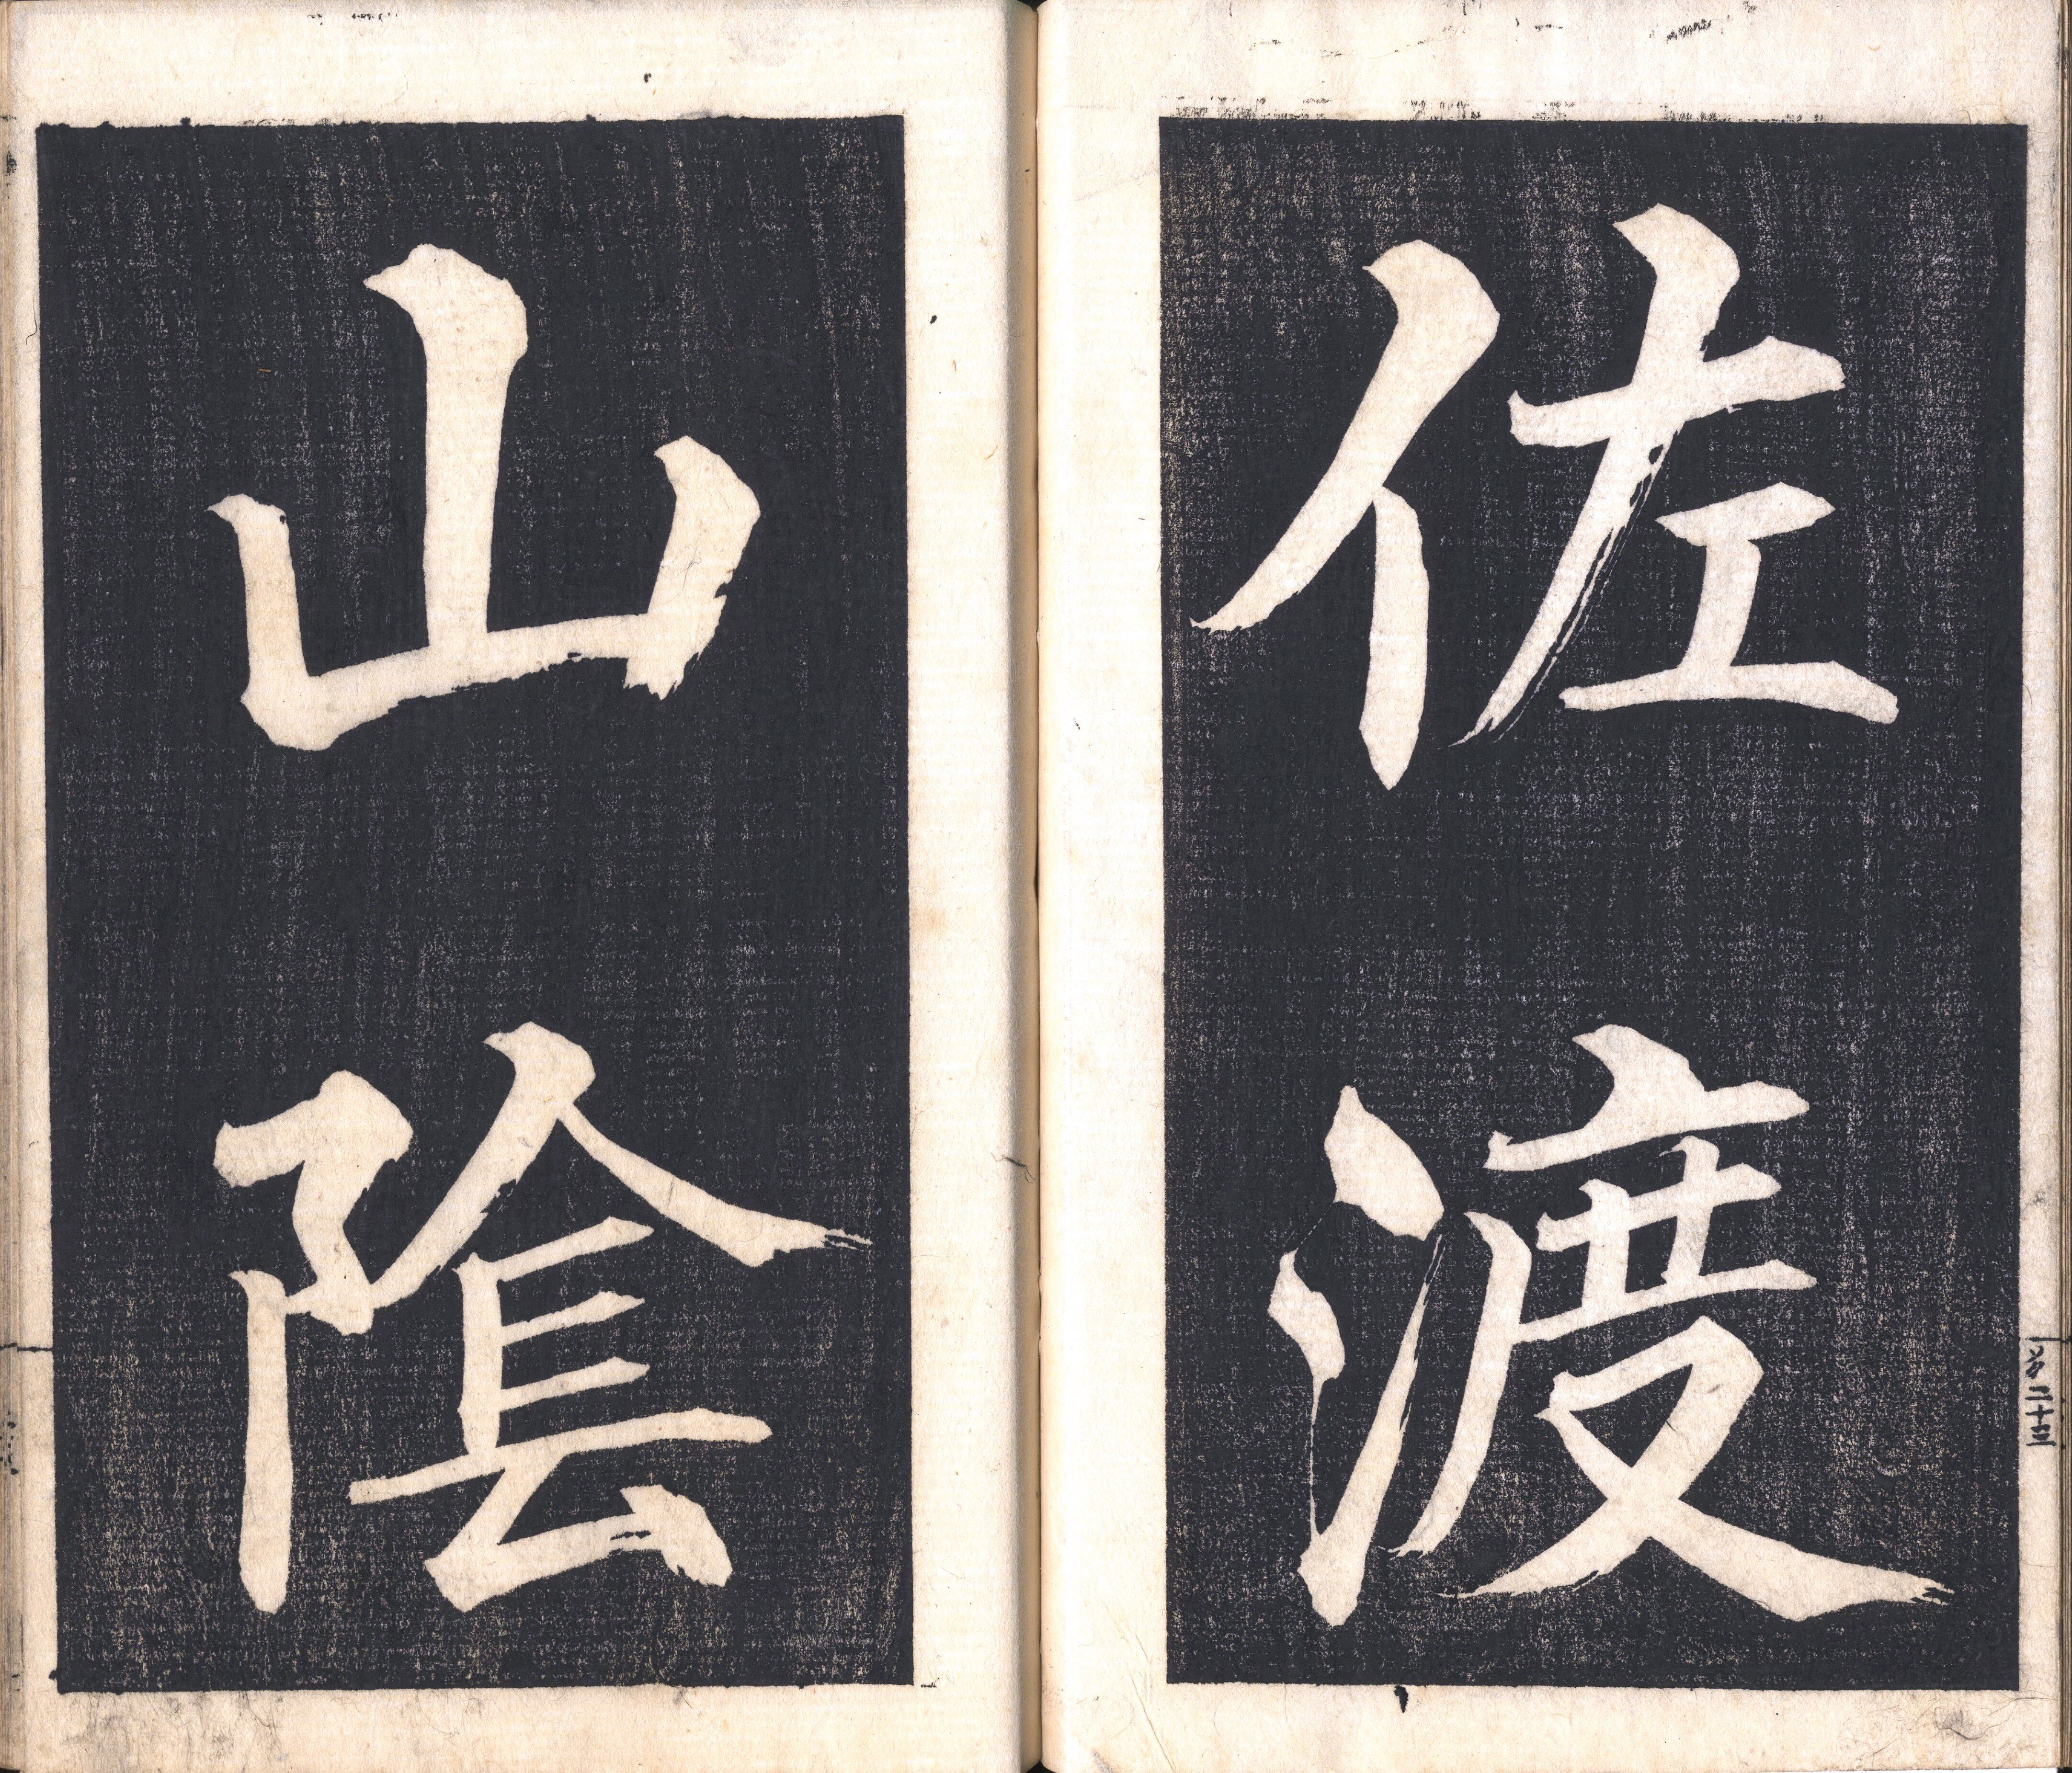 佐渡
山陰
二十三